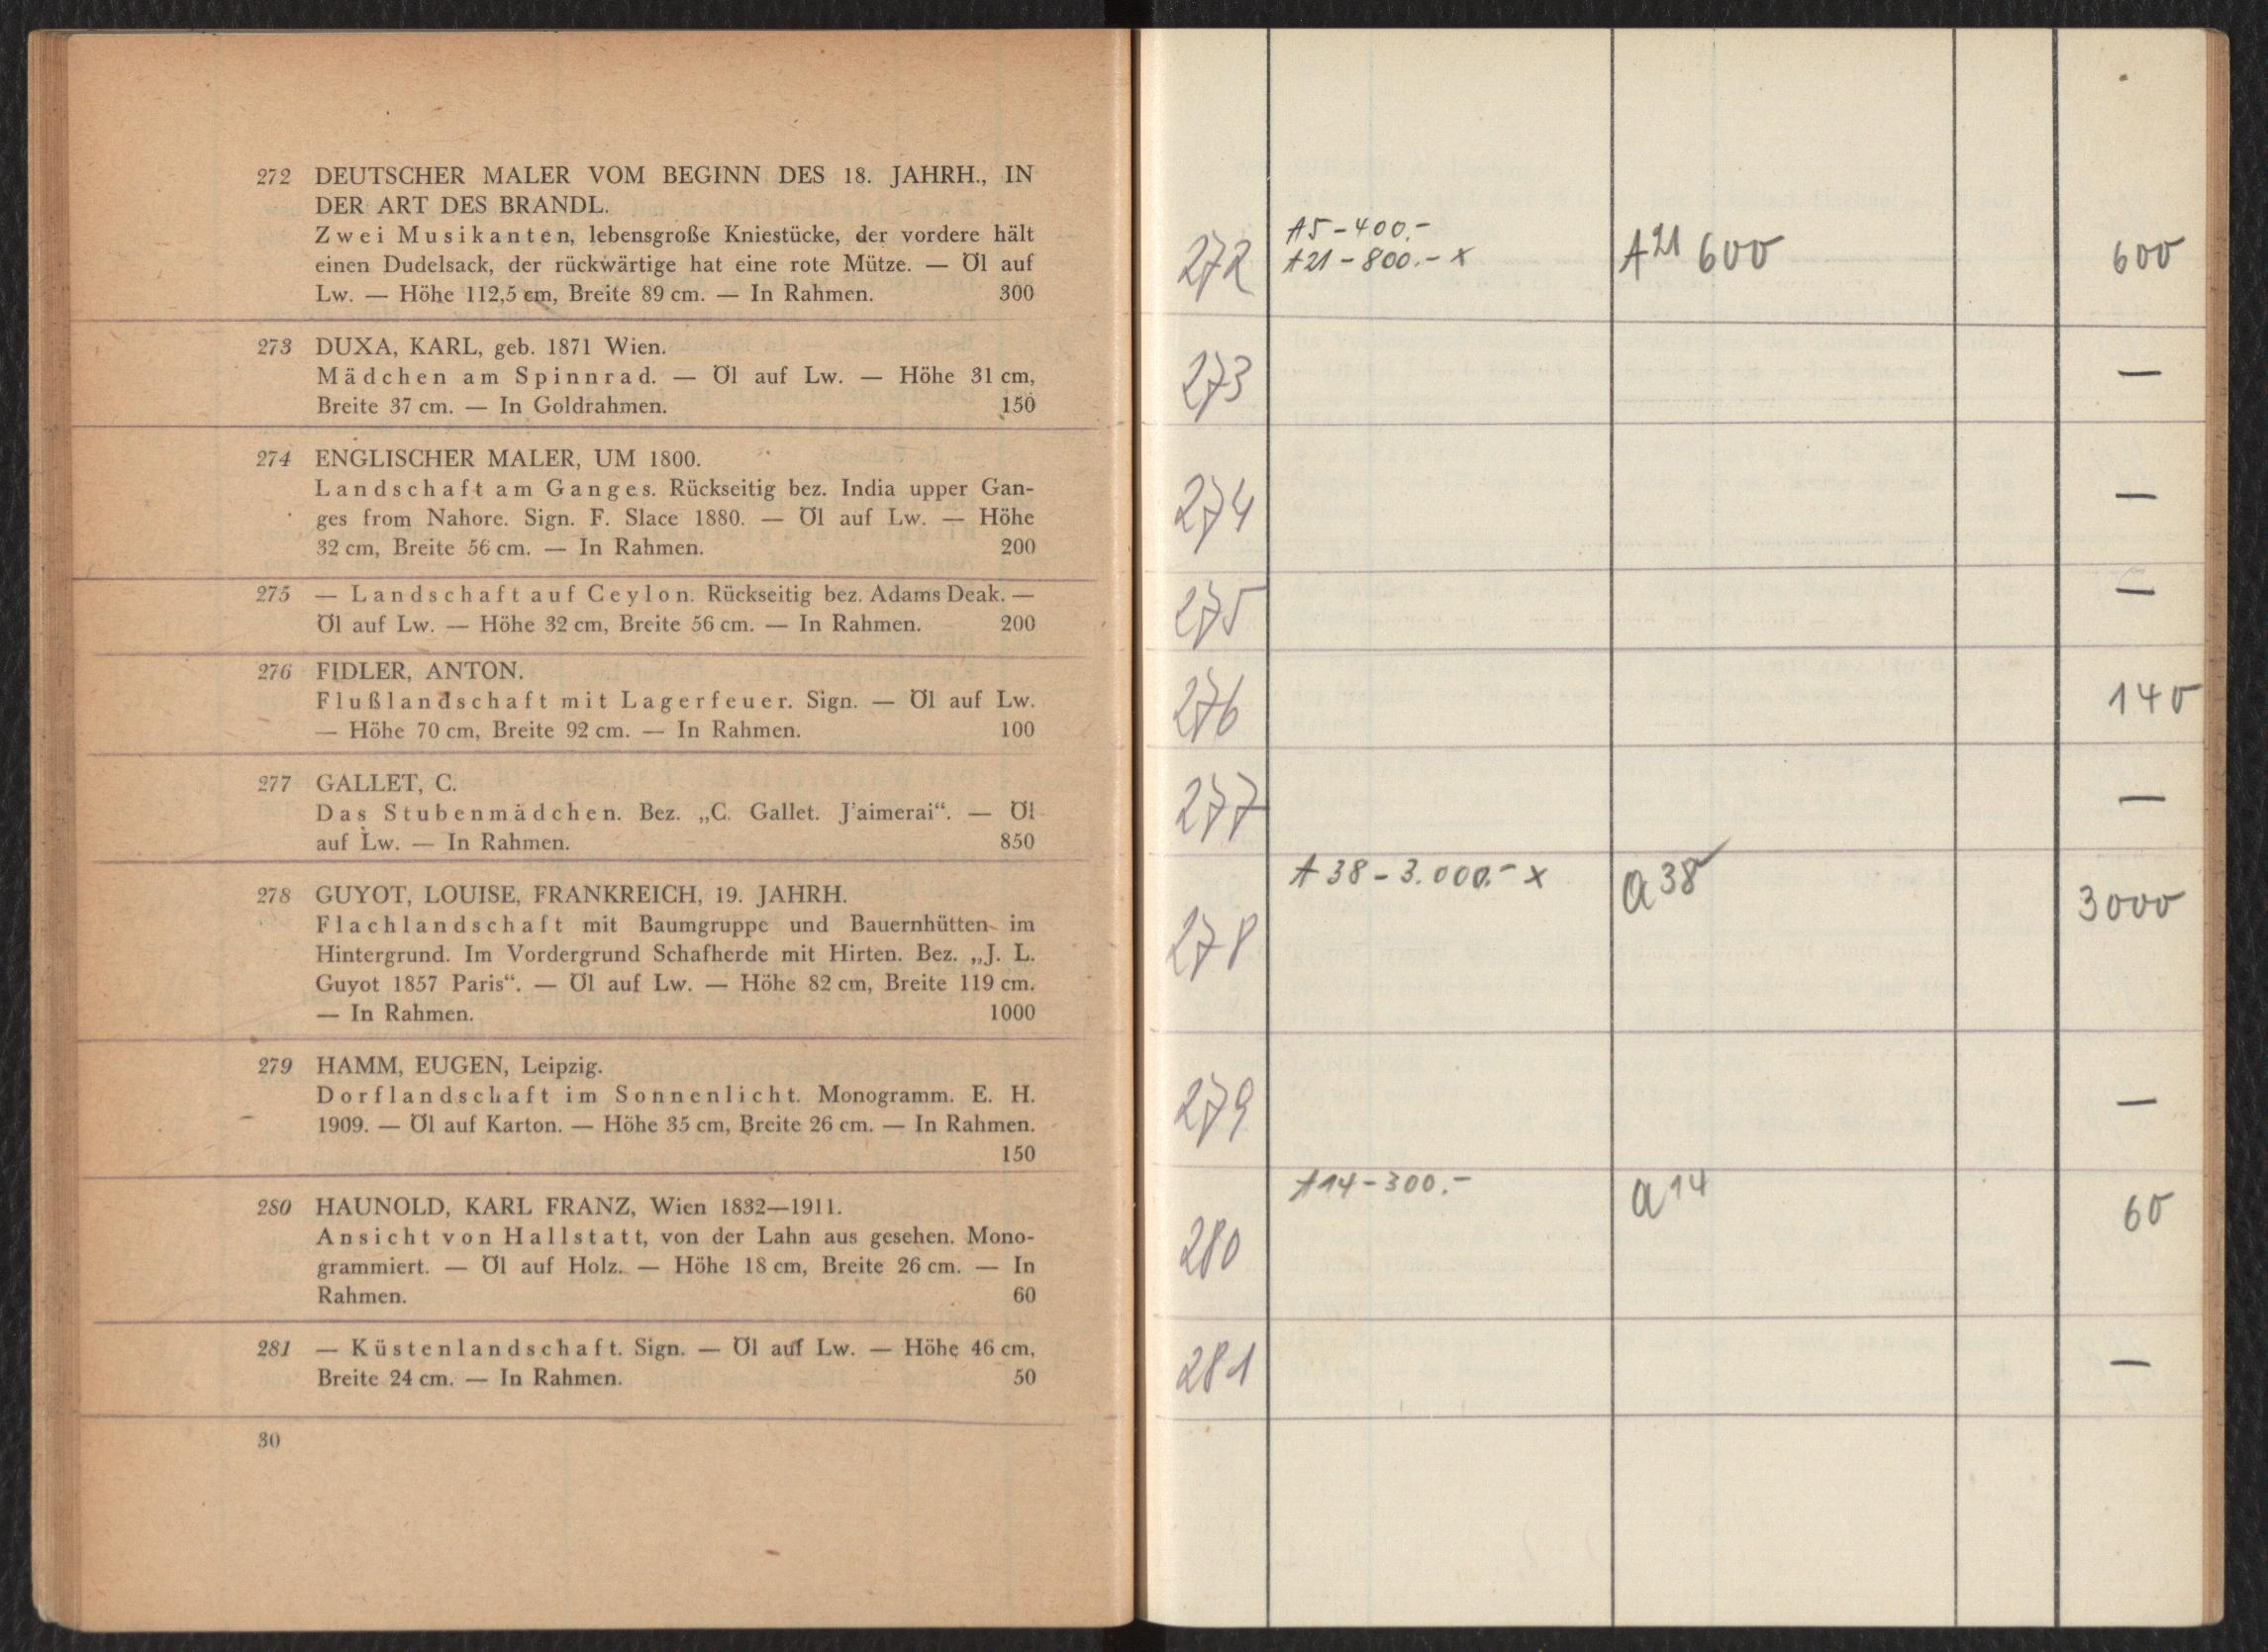 272 DEUTSCHER MALER VOM BEGINN DES 18. JAHRH., IN
DER ART DES BRANDL.
Zwei Musikanten, lebensgroße Kniestücke, der vordere hält
einen Dudelsack, der rückwärtige hat eine rote Mütze. — Öl auf
Lw. — Höhe 112,5 cm, Breite 89 cm. — In Rahmen. 300
273 DUXA, KARL, geb. 1871 Wien.
Mädchen am Spinnrad. — Öl auf Lw. — Höhe 31 cm,
Breite 37 cm. — In Goldrahmen. 150
274 ENGLISCHER MALER, UM 1800.
Landschaft am Ganges. Rückseitig bez. India upper Gan-
ges from Nahore. Sign. F. Slace 1880. — Öl auf Lw. — Höhe
32 cm, Breite 56 cm. — In Rahmen. 200
275 — Landschaft auf Ceylon. Rückseitig bez. Adams Deak. —
Öl auf Lw. — Höhe 32 cm, Breite 56 cm. — In Rahmen. 200
276 FIDLER, ANTON.
Flußlandschaft mit Lagerfeuer. Sign. — Öl auf Lw.
— Höhe 70 cm, Breite 92 cm. — In Rahmen. 100
277 GALLET, C.
Das Stubenmädchen. Bez. „C. Gallet. J'aimerai“. — Öl
auf Lw. — In Rahmen. 850
278 GUYOT, LOUISE, FRANKREICH, 19. JAHRH.
Flachlandschaft mit Baumgruppe und Bauernhütten im
Hintergrund. Im Vordergrund Schafherde mit Hirten. Bez. „J. L.
Guyot 1857 Paris“. — Öl auf Lw. — Höhe 82 cm, Breite 119 cm.
— In Rahmen. 1000
279 HAMM, EUGEN, Leipzig.
Dorflandschaft im Sonnenlicht. Monogramm. E. H.
1909. — Öl auf Karton. — Höhe 35 cm, Breite 26 cm. — In Rahmen.
150
280 HAUNOLD, KARL FRANZ, Wien 1832—1911.
Ansicht von Hallstatt, von der Lahn aus gesehen. Mono-
grammiert. — Öl auf Holz. — Höhe 18 cm, Breite 26 cm. — In
Rahmen. 60
281 — Küstenlandschaft. Sign. — Öl auf Lw. — Höhe 46 cm,
Breite 24 cm. — In Rahmen. 50
30
A5 - 400.-
272 A21 - 800.- x A21 600 600
273 —
274 —
275 —
276 140
277 —
A 38 - 3.000.- x a 38
278 3000
279 —
A14 - 300.- a 14
280 60
281 —